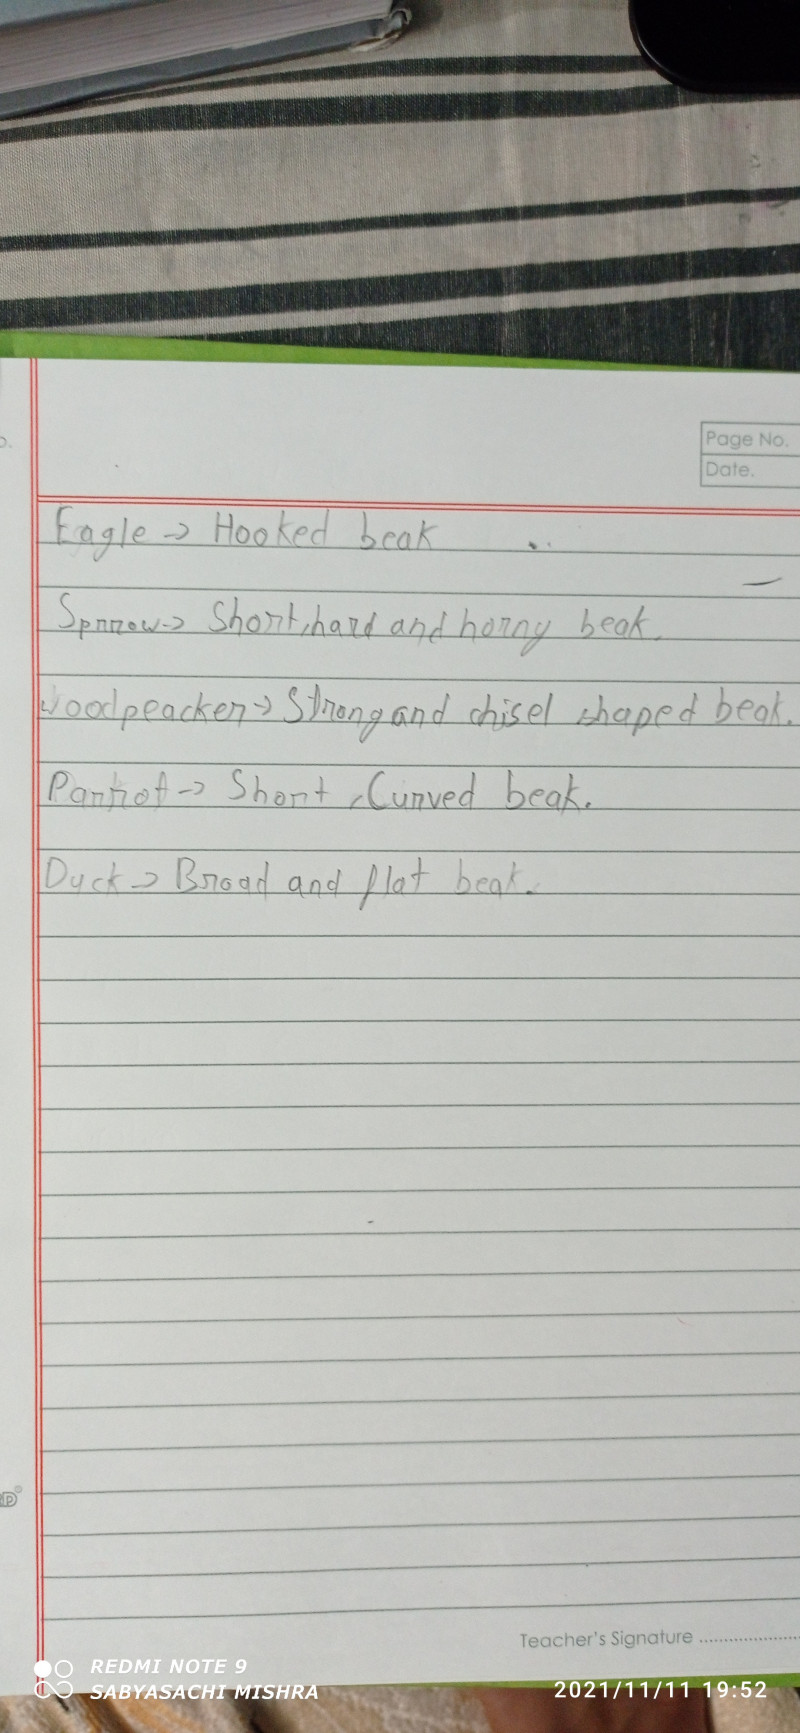 Page No.
Date.
Eagle → Hooked beak
Sprrow → Short, hard and horny beak.
woodpeacker → Strong and chisel shaped beak.
Parrot → Short, Curved beak.
Duck → Broad and flat beak.
Teacher's Signature ....................
REDMI NOTE 9
SABYASACHI MISHRA
2021/11/11 19:52